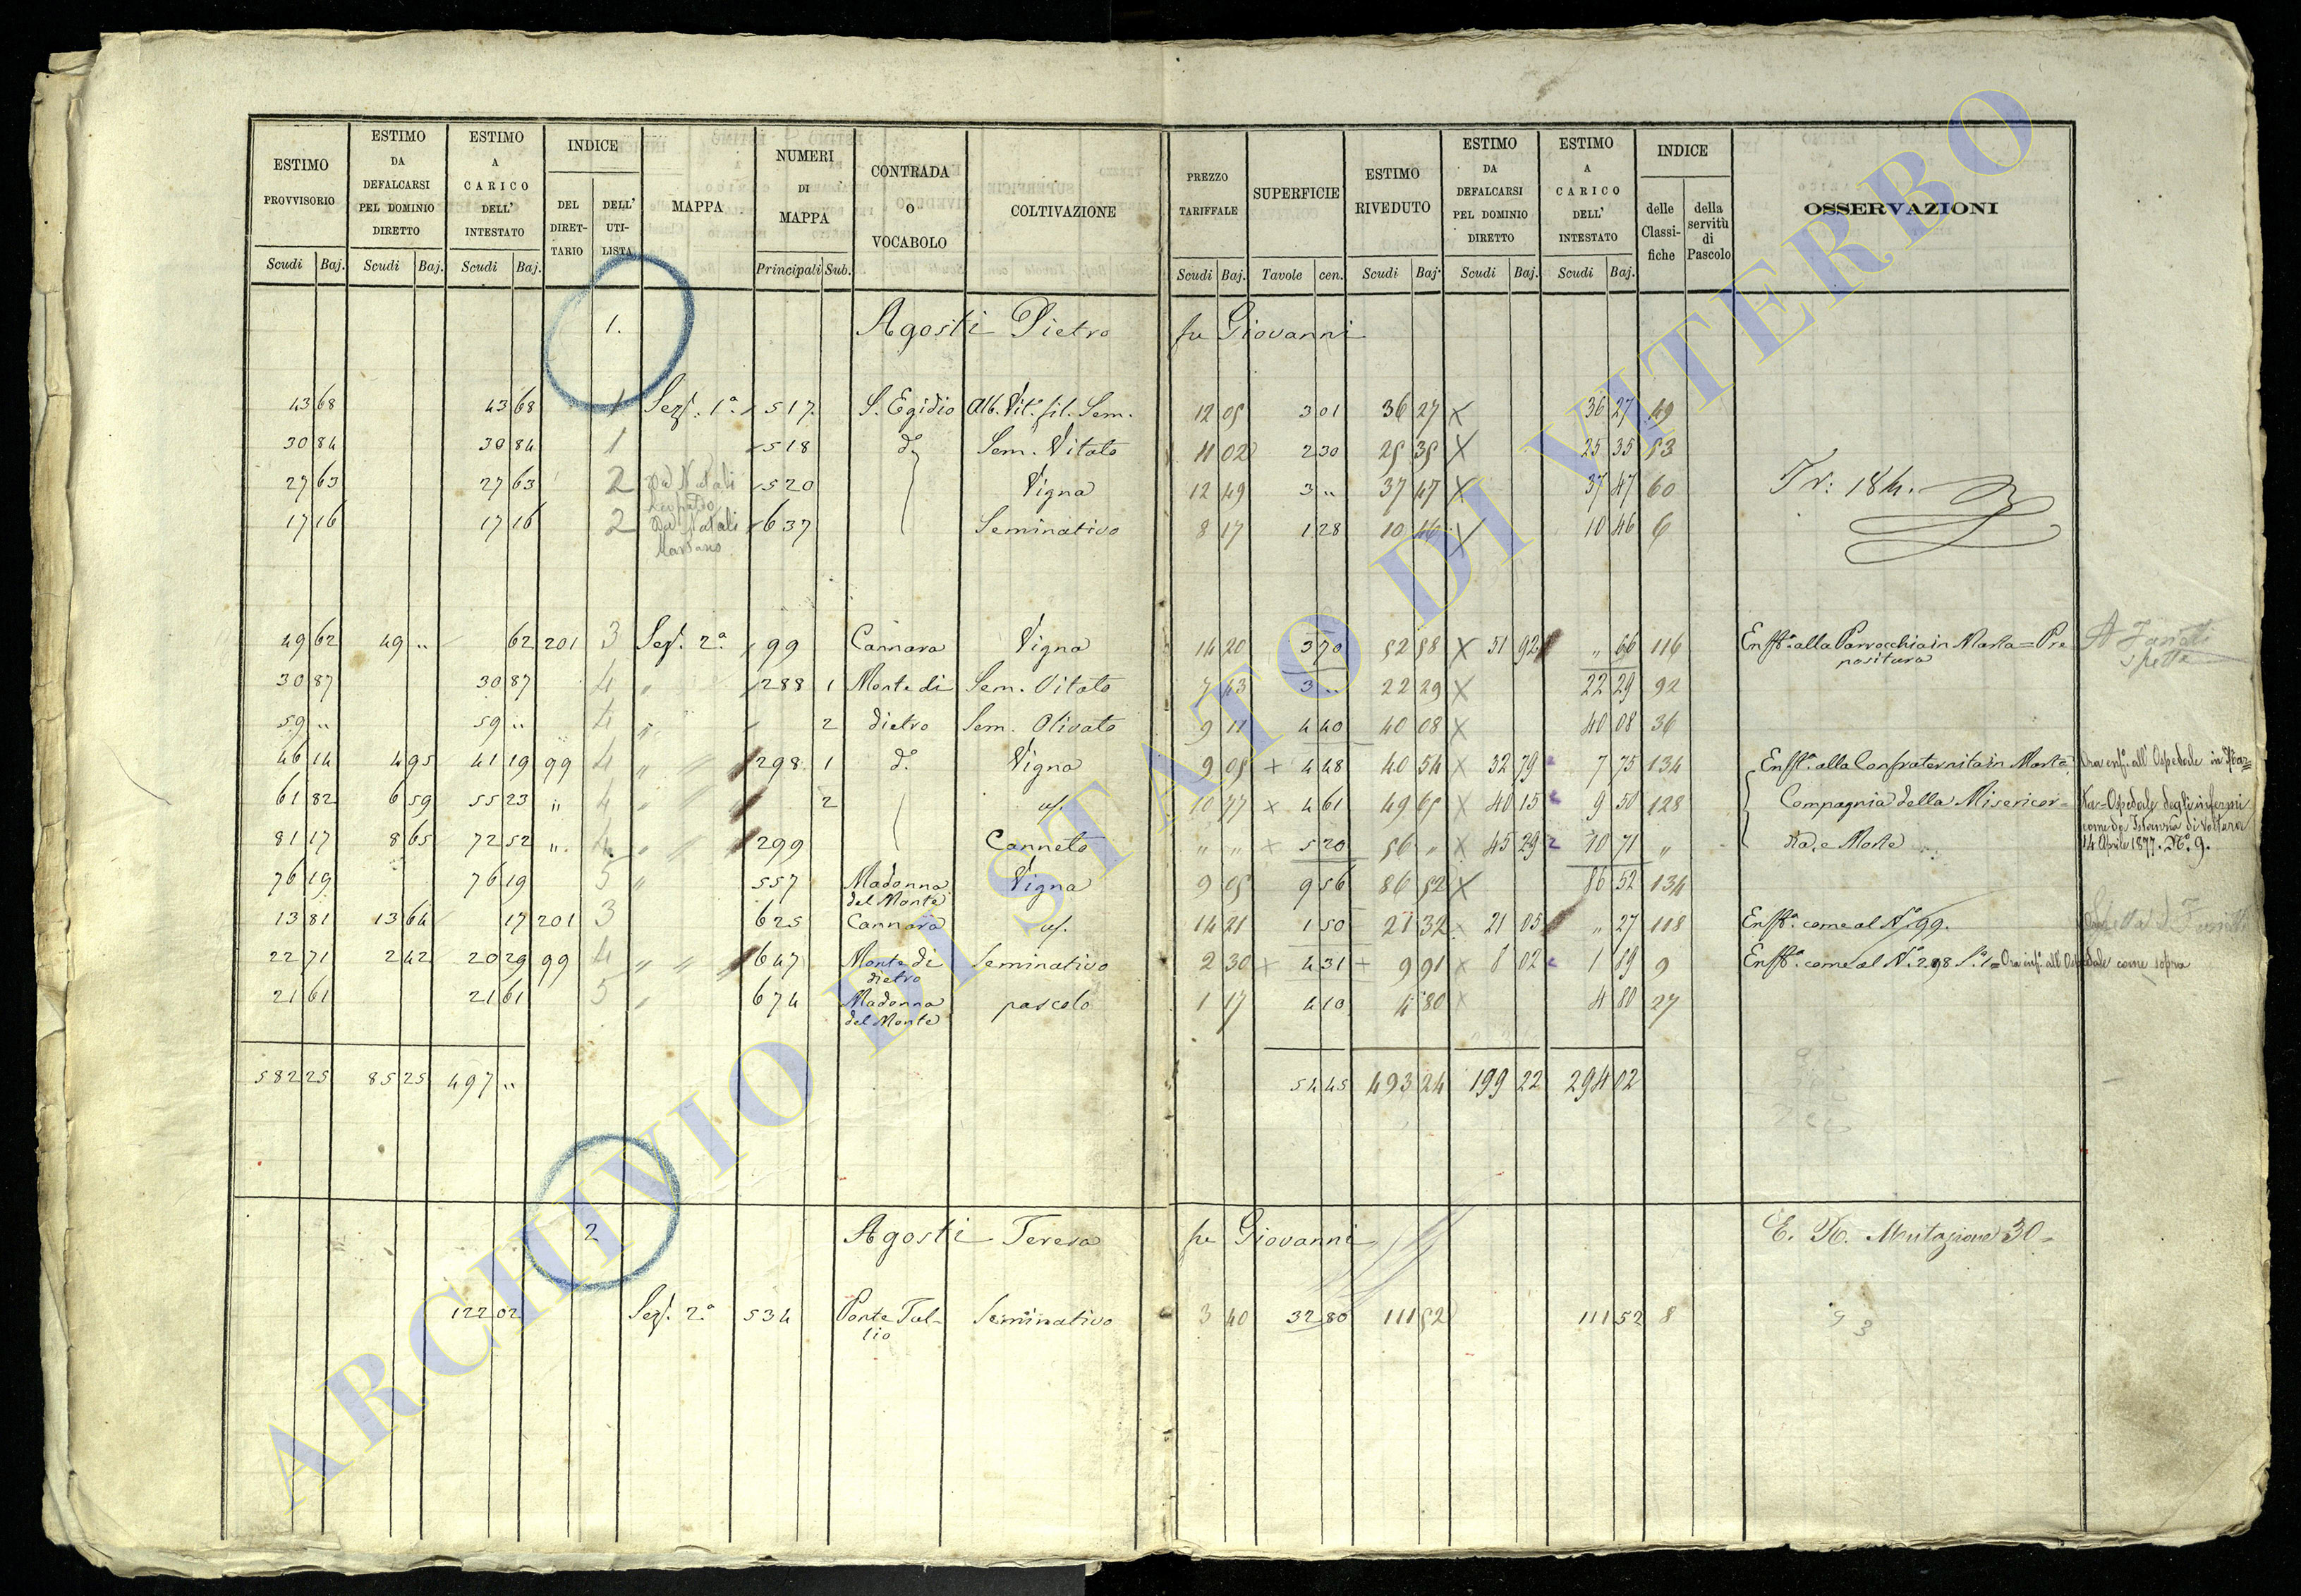 ESTIMO PROVVISORIO Scudi Baj. ESTIMO DA DEFALCARSI PEL DOMINIO DIRETTO Scudi Baj. ESTIMO A CARICO DELL' INTESTATO Scudi Baj. INDICE DEL DIRET-TARIO DELL' UTI-LISTA MAPPA NUMERI DI MAPPA Principali Sub. CONTRADA O VOCABOLO COLTIVAZIONE PREZZO TARIFFALE Scudi Baj. SUPERFICIE Tavole cen. ESTIMO RIVEDUTO Scudi Baj. ESTIMO DA DEFALCARSI PEL DOMINIO DIRETTO Scudi Baj. ESTIMO A CARICO DELL' INTESTATO Scudi Baj. INDICE delle Classi-fiche della servitù di Pascolo OSSERVAZIONI
1. Agosti Pietro fu Giovanni
43 68 43 68 1 Sez. 1ª 517 S. Egidio Alb. Vit. fil. Sem. 12 05 3 01 36 27 X 36 27 49
30 84 30 84 1 518 d° Sem. Vitato 11 02 2 30 25 35 X 25 35 53
27 63 27 63 2 Da Natali 520 Vigna 12 49 3 " 37 47 X 37 47 60 Tr: 184.
17 16 17 16 2 Da Natali 637 Seminativo 8 17 1 28 10 46 X 10 46 6
49 62 49 " 62 201 3 Sez. 2ª 99 Cannara Vigna 14 20 3 70 52 58 X 51 92 " 66 116 Enfta. alla Parrocchia in Marta = Pre
positura
30 87 30 87 4 " 288 1 Monte di Sem. Vitato 7 43 3 " 22 29 X 22 29 92
59 " 59 " 4 " 2 dietro Sem. Olivato 9 11 4 40 40 08 X 40 08 36
46 14 4 95 41 19 99 4 " 298 1 d° Vigna 9 05 X 4 48 40 54 X 32 79 7 75 134 Enfta. alla Confraternita in Marta= Ora enf. all' Ospedale in Mar=
61 82 6 59 55 23 " 4 " 2 uf. 10 77 X 4 61 49 65 X 40 15 9 50 128 Compagnia della Misericor- ta=Ospedale degli infermi
come da Istanza di Voltura
81 17 8 65 72 52 " 4 " 299 Canneto " " X 5 20 56 " X 45 29 10 71 " dia, e Morte 14 Aprile 1877. N° 9.
76 19 76 19 5 " 557 Madonna Vigna 9 05 9 56 86 52 X 86 52 134
del Monte
13 81 13 64 17 201 3 625 Cannara uf. 14 21 1 50 21 32 X 21 05 " 27 118 Enfta. come al N° 99.
22 71 2 42 20 29 99 4 " 647 Monte di Seminativo 2 30 X 4 31 9 91 X 8 02 1 89 9 Enfta. come al N° 298 S. 1 = Ora inf. all' Ospedale come sopra
dietro
21 61 21 61 5 " 674 Madonna pascolo 1 17 4 10 4 80 X 4 80 27
del Monte
582 25 85 25 497 " 54 45 493 24 199 22 294 02
2 Agosti Teresa fu Giovanni E. N. Mutazione 30 =
122 02 Sez. 2ª 534 Ponte Tul- Seminativo 3 40 32 80 111 52 111 52 8
lio
9
3
ARCHIVIO DI STATO DI VITERBO